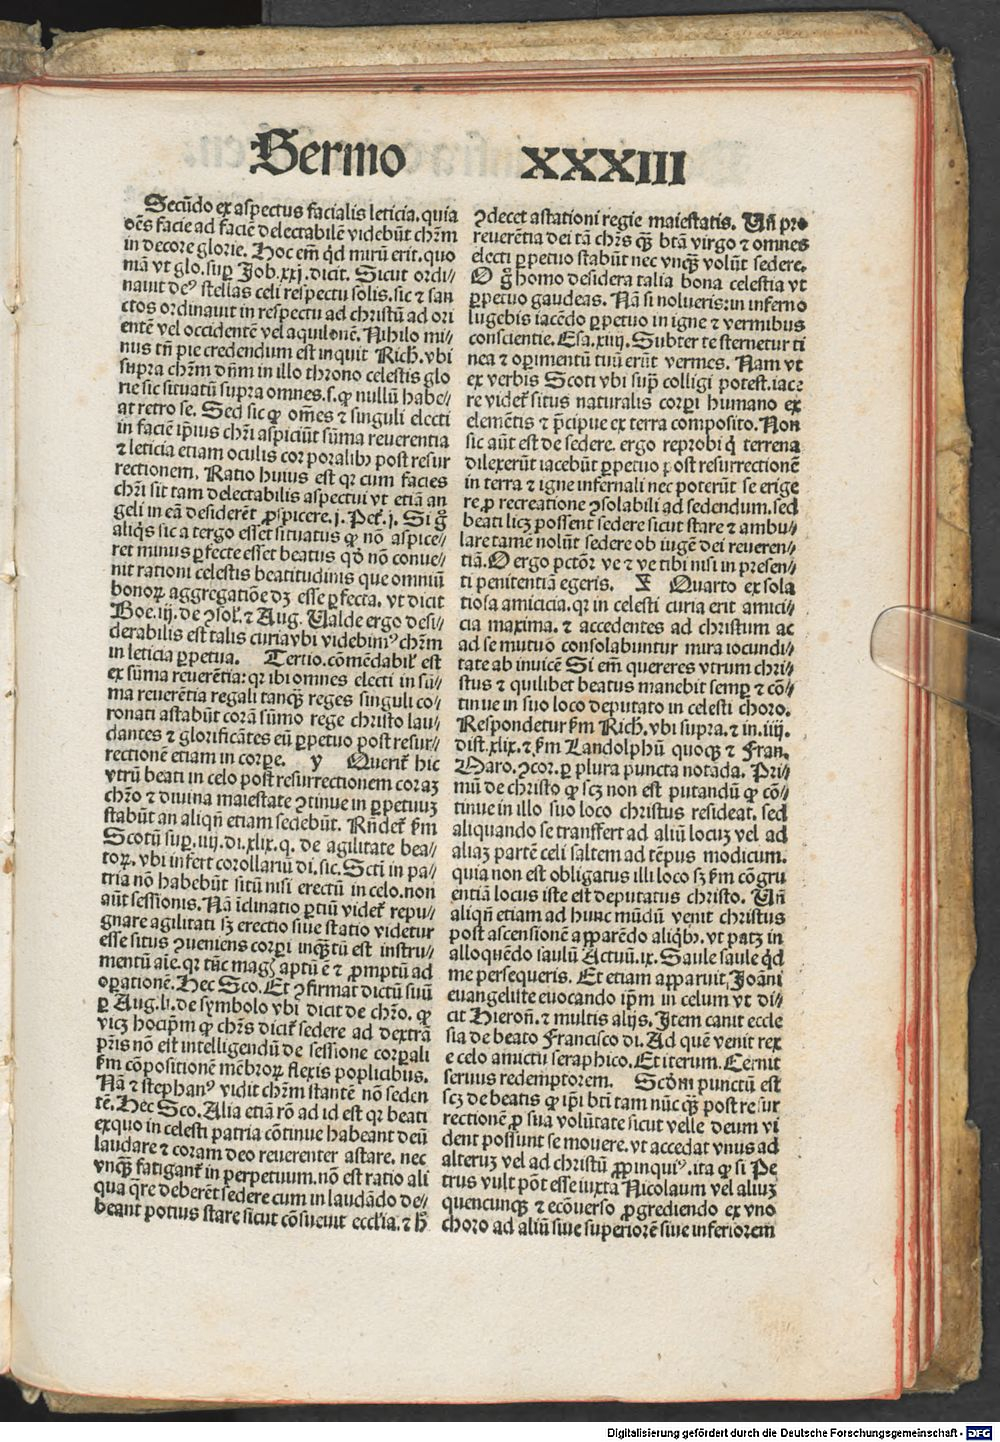 Sermo XXXIII
Secūdo ex aspectus facialis leticia. quia
oēs facie ad faciē delectabilē videbūt chr̄m
in decore glorie. Hoc em̄ qd̄ mirū erit. quo
niā vt glo. sup̄ Job. xxj. dicit. Sicut ordi⸗
nauit deꝰ stellas celi respectu solis. sic ⁊ san
ctos ordinauit in respectu ad christū ad ori
entē vel occidentē vel aquilonē. Nihilo mi⸗
nus tn̄ pie credendum est inquit Rich̄. vbi
supra chr̄m dn̄m in illo throno celestis glo
rie sic situatū supra omnes. s. ꝙ nullū habe⸗
at retro se. Sed sic ꝙ om̄es ⁊ singuli electi
in faciē ip̄ius chr̄i aspiciūt sūma reuerentia
⁊ leticia etiam oculis corporalibꝫ post resur
rectionem. Ratio huius est qr cum facies
chr̄i sit tam delectabilis aspectui vt etiā an
geli in eā desiderēt ꝓspicere. j. Pet̄. j. Si g̊
aliqͥs sic a tergo esset situatus ꝙ nō aspice⸗
ret minus ꝑfecte esset beatus qd̄ nō conue⸗
nit rationi celestis beatitudinis que omniū
bonoꝝ aggregatiōe dꝫ esse ꝑfecta. vt dicit
Boe. iij. de ꝯsol̄. ⁊ Aug. Ualde ergo desi⸗
derabilis est talis curia vbi videbimꝰ chr̄m
in leticia ꝑpetua. Tertio. cōmēdabil̄ est
ex sūma reuerētia: qr ibi omnes electi in sū⸗
ma reuerētia regali tanqꝫ reges singuli co⸗
ronati astabūt corā sūmo rege christo lau⸗
dantes ⁊ glorificātes eū ꝑpetuo post resur⸗
rectionē etiam in corꝑe. y Querit̄ hic
vtrū beati in celo post resurrectionem coraꝫ
chr̄o ⁊ diuina maiestate ꝯtinue in ꝑpetuuꝫ
stabūt an aliqn̄ etiam sedebūt. Rn̄det̄ ẜm
Scotū sup̄. iiij. di. xlix. q. de agilitate bea⸗
toꝝ. vbi infert corollariū di. sic. Scti in pa⸗
tria nō habebūt sitū nisi erectū in celo. non
aūt sessionis. Nā īclinatio ꝑtiū videt̄ repu⸗
gnare agilitati sꝫ erectio siue statio videtur
esse situs ꝯueniens corꝑi inqꝫtū est instru⸗
mentū aīe. qr tūc magꝭ aptū ē ⁊ ꝓmptū ad
oꝑationē. Hec Sco. Et ꝯfirmat dictū suū
ꝑ Aug. li. de symbolo vbi dicit de chr̄o. ꝙ
vicꝫ hocip̄m ꝙ chr̄s dicit̄ sedere ad dextrā
pr̄is nō est intelligendū de sessione corꝑali
ẜm cōpositionē mēbroꝝ flexis poplicibus.
Nā ⁊ stephanꝰ vidit chr̄m stantē nō seden
tē. Hec Sco. Alia etiā rō ad id est qr beati
exquo in celesti patria cōtinue habeant deū
laudare ⁊ coram deo reuerenter astare. nec
vnqꝫ fatigant̄ in perpetuum. nō est ratio ali
qua qͣre deberēt sedere cum in laudādo de⸗
beant potius stare sicut cōsueuit eccl̄ia. ⁊ h̊
ꝯdecet astationi regie maiestatis. Un̄ pro
reuerētia dei tā chr̄s qꝫ btā virgo ⁊ omnes
electi ꝑpetuo stabūt nec vnqꝫ volūt sedere.
O g̊ homo desidera talia bona celestia vt
ꝑpetuo gaudeas. Nā si nolueris: in inferno
lugebis iacēdo ꝑpetuo in igne ⁊ vermibus
conscientie. Esa. xiiij. Subter te sternetur ti
nea ⁊ oꝑimentū tuū erūt vermes. Nam vt
ex verbis Scoti vbi sup̄ colligi potest. iace
re videt̄ situs naturalis corꝑi humano ex
elemētis ⁊ p̄cipue ex terra composito. Non
sic aūt est de sedere. ergo reprobi qͥ terrena
dilexerūt iacebūt ꝑpetuo post resurrectionē
in terra ⁊ igne infernali nec poterūt se erige
re ꝓ recreatione ꝯsolabili ad sedendum. sed
beati licꝫ possent sedere sicut stare ⁊ ambu⸗
lare tamē nolūt sedere ob iugē dei reueren⸗
tiā. O ergo pctōr ve ⁊ ve tibi nisi in presen⸗
ti penitentiā egeris. Quarto ex sola
tiosa amicicia. qr in celesti curia erit amici⸗
cia maxima. ⁊ accedentes ad christum ac
ad se mutuō consolabuntur mira iocundi⸗
tate ab inuicē Si em̄ quereres vtrum chri⸗
stus ⁊ quilibet beatus manebit semꝑ ⁊ cō⸗
tinue in suo loco deputato in celesti choro.
Respondetur ẜm Rich̄. vbi supra. ⁊ in. iiij.
dist. xlix. ⁊ ẜm Landolphū quoqꝫ ⁊ Fran.
Maro. ꝯcor. ꝑ plura puncta notāda. Pri⸗
mū de christo ꝙ scꝫ non est putandū ꝙ cō⸗
tinue in illo suo loco christus resideat. sed
aliquando se transfert ad aliū locuꝫ vel ad
aliaꝫ partē celi saltem ad tēpus modicum.
quia non est obligatus illi loco sꝫ ẜm cōgru
entiā locus iste est deputatus christo. Un̄
aliqn̄ etiam ad hunc mūdū venit christus
post ascensionē apparēdo aliqͥbꝫ. vt patꝫ in
alloquēdo saulū Actuū. ix. Saule saule qͥd
me persequeris. Et etiam apparuit Joāni
euangeliste euocando ip̄m in celum vt di⸗
cit Hieron̄. ⁊ multis alijs. Item canit eccle
sia de beato Francisco di. Ad quē venit rex
e celo amictu seraphico. Et iterum. Cernit
seruus redemptorem. Scd̄m punctū est
scꝫ de beatis ꝙ ip̄i bt̄i tam nūc qꝫ post resur
rectionē ꝓ sua volūtate sicut velle deum vi
dent possunt se mouere. vt accedat vnus ad
alteruꝫ vel ad christū ꝓpinquiꝰ. ita ꝙ si Pe
trus vult pōt esse iuxta Nicolaum vel aliuꝫ
quencunqꝫ ⁊ ecōuerso ꝓgrediendo ex vno
choro ad aliū siue superiorē siue inferiorem
Digitalisierung gefördert durch die Deutsche Forschungsgemeinschaft - DFG